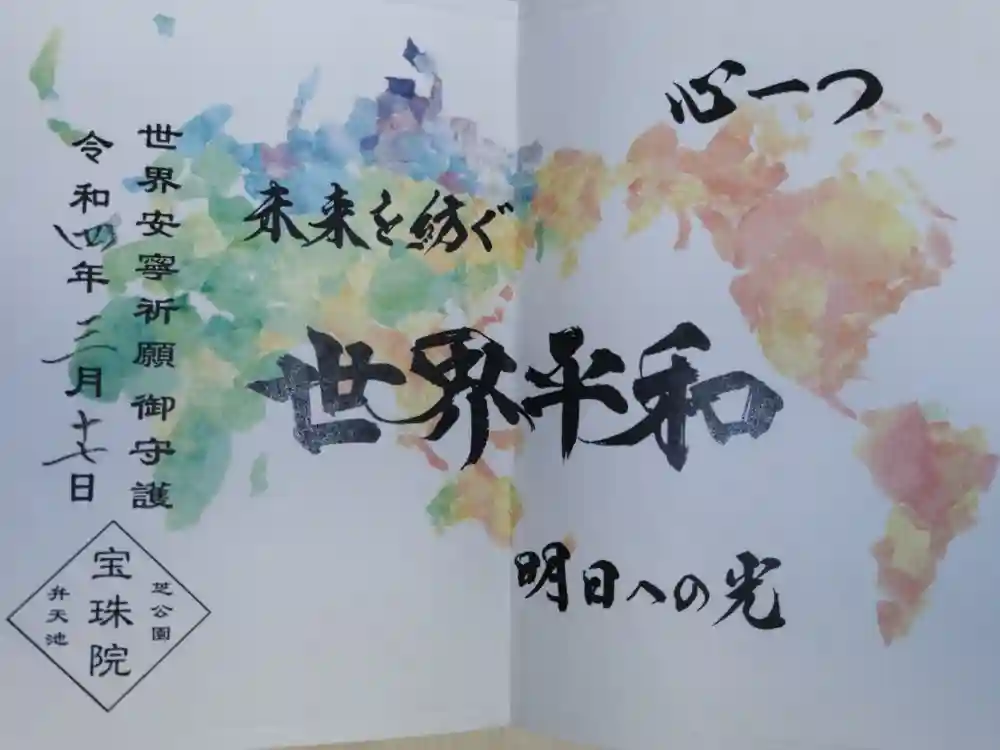 心一つ
未来を紡ぐ
世界平和
明日への光
世界安寧祈願 御守護
令和四年三月十七日
芝公園
宝珠院
弁天池